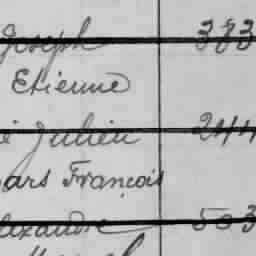 Joseph 383
Etienne
é Julien 244
ars François
lexandre 503